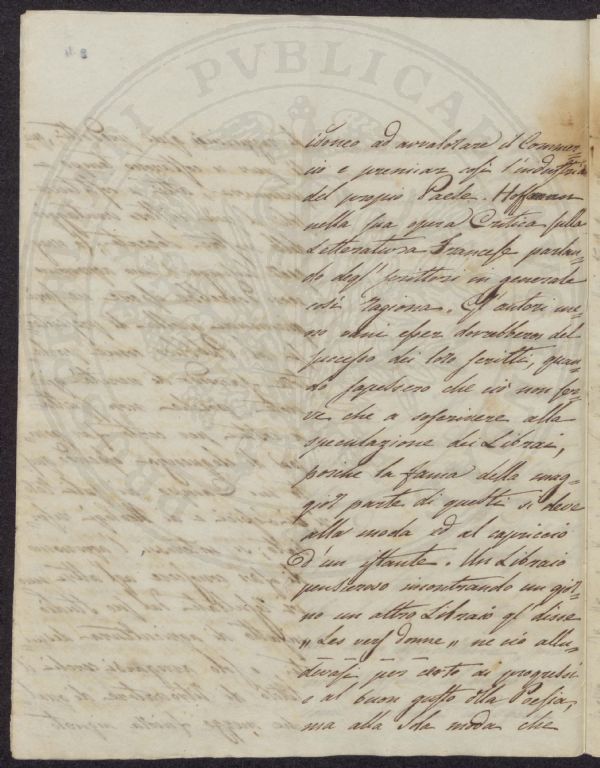 idoneo ad avvalorare il Commer-
cio e premiar così l'industria
del propio Paese. Hoffman
nella sua opera Critica sulla
Letteratura Francese parlan-
do degl' scrittori in generale
così ragiona. Gl' autori me-
no vani esser dovrebbero del
successo dei loro scritti, quan-
do sapessero che ciò non ser-
ve che a soscrivere alla
speculazione dei Librai,
poiché la fama della mag-
gior parte di questi si deve
alla moda ed al capriccio
d'un istante. Un Libraio
pensieroso incontrando un gior-
no un altro Libraio gl' disse
„ Les vers donne „ ne ciò allu-
devasi per certo ai progressi
e al buon gusto della Poesia,
ma alla sola moda che